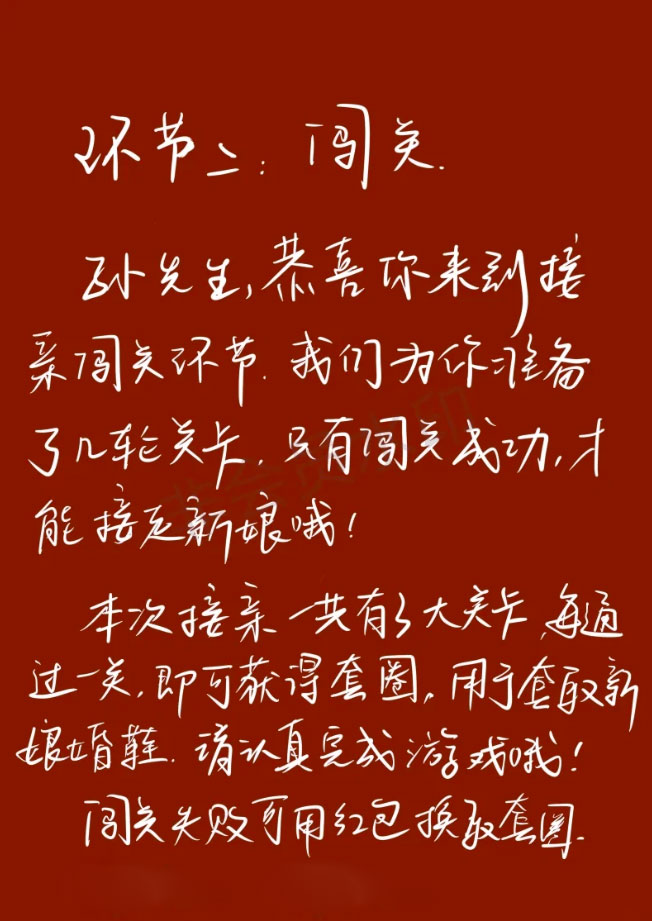 环节二：闯关.
孙先生,恭喜你来到接
亲闯关环节.我们为你准备
了几轮关卡,只有闯关成功,才
能接走新娘哦!
本次接亲一共有3大关卡,每通
过一关,即可获得套圈,用于套取新
娘婚鞋.请认真完成游戏哦!
闯关失败可用红包换取套圈.